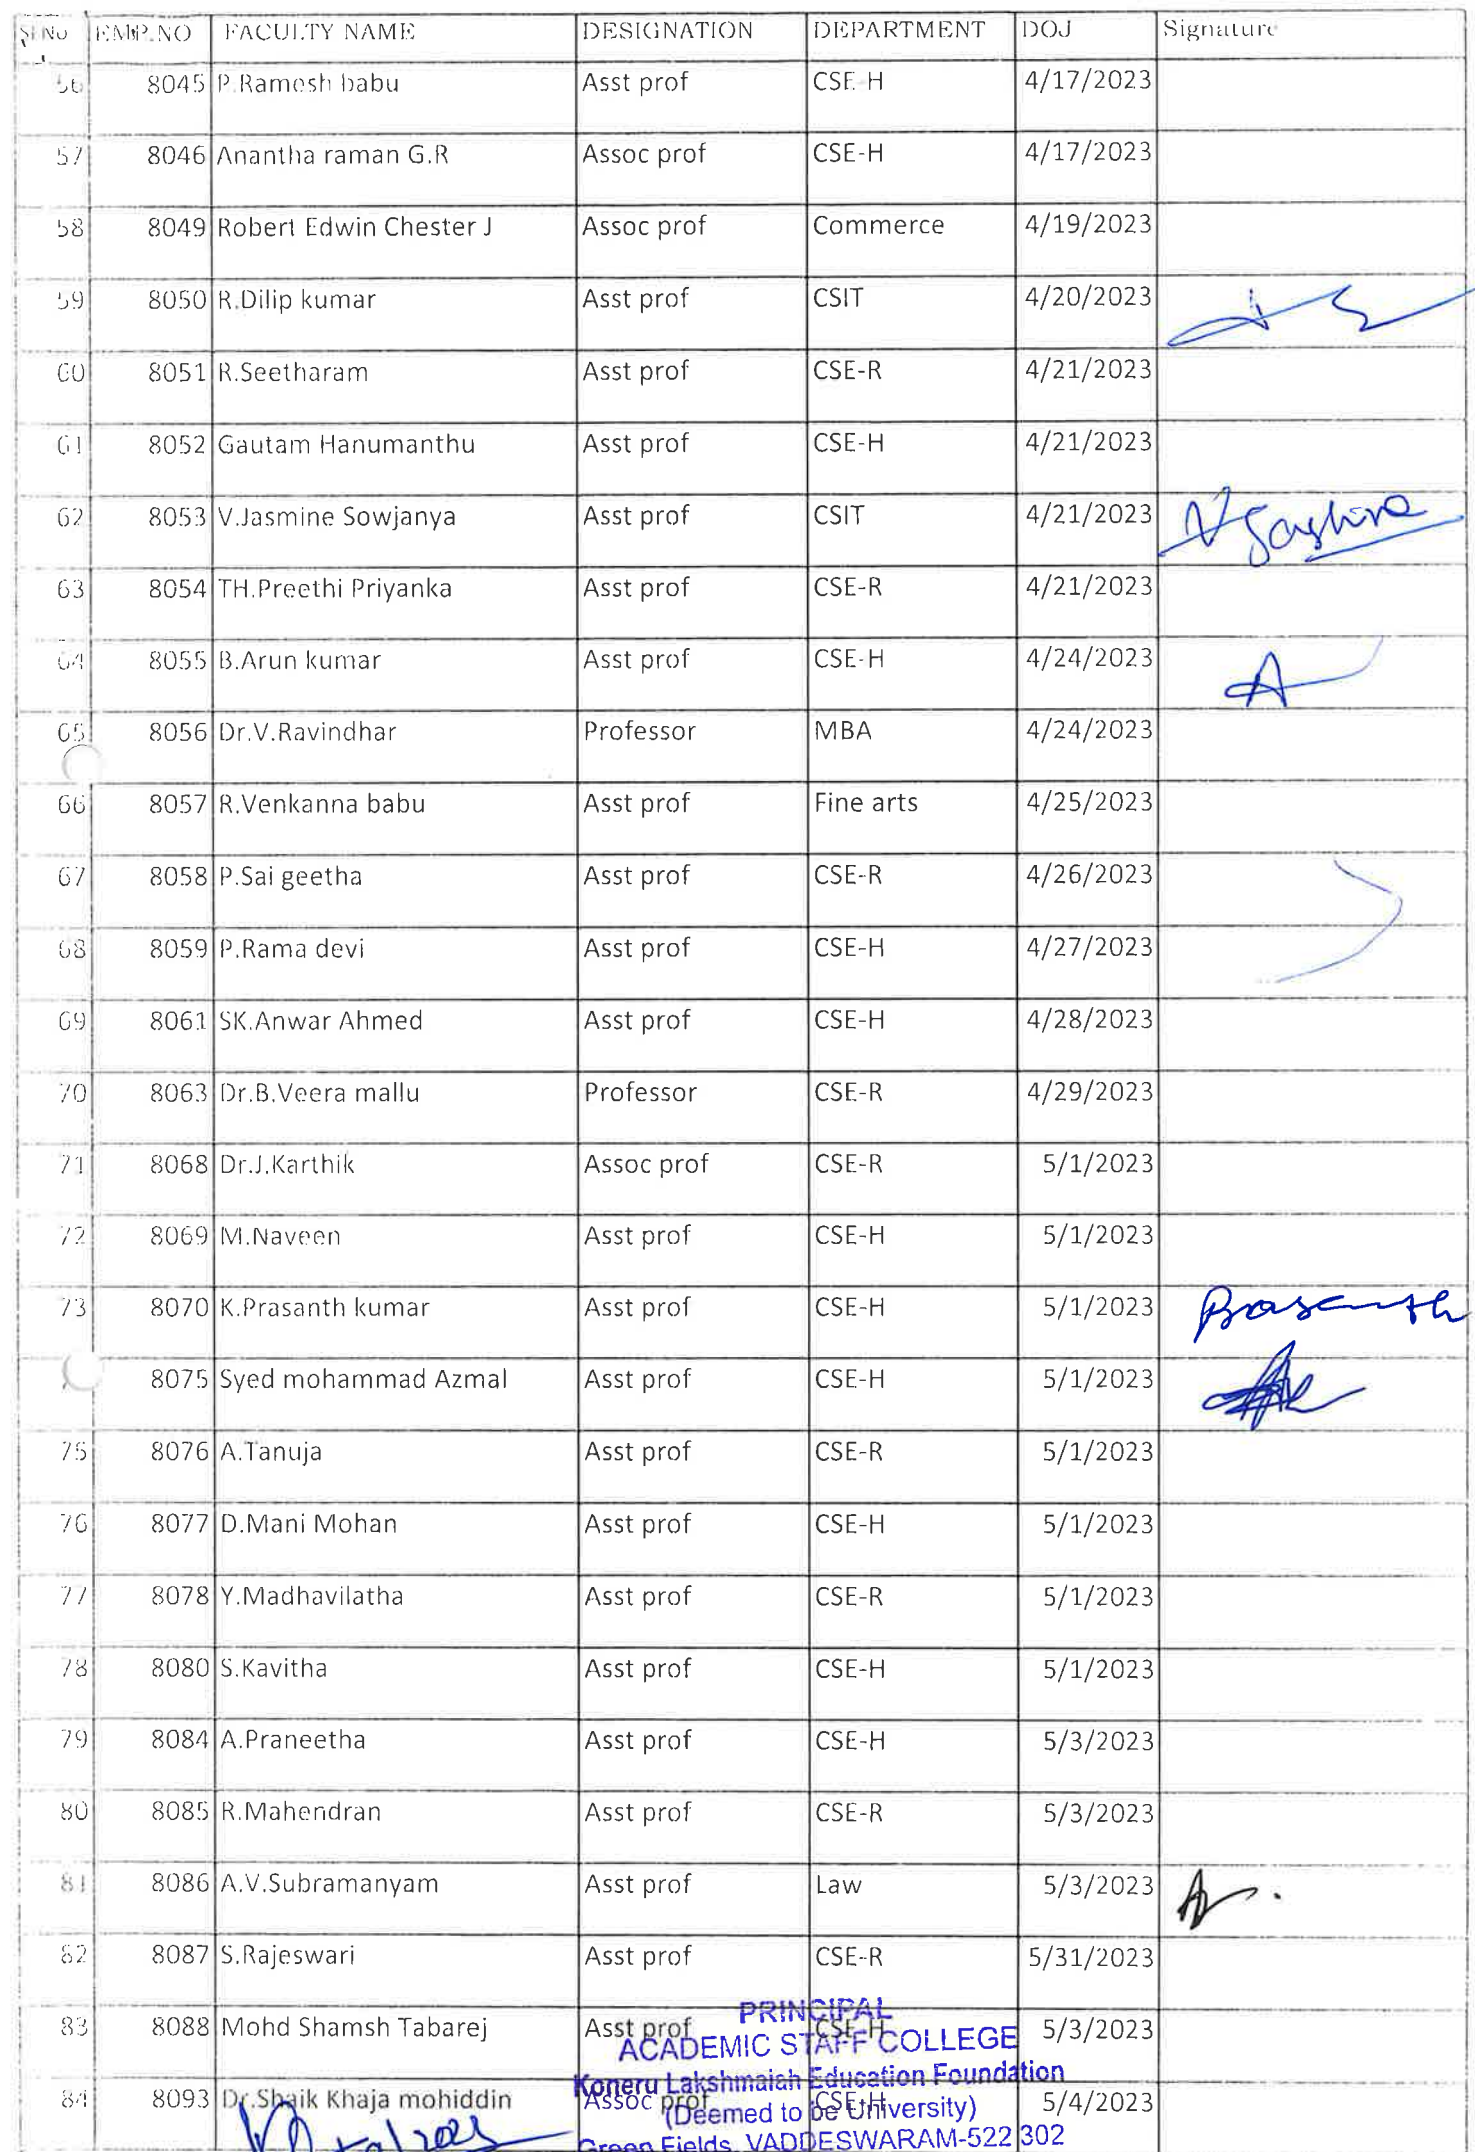 Sl No EMP.NO FACULTY NAME DESIGNATION DEPARTMENT DOJ Signature
56 8045 P.Ramesh babu Asst prof CSE-H 4/17/2023
57 8046 Anantha raman G.R Assoc prof CSE-H 4/17/2023
58 8049 Robert Edwin Chester J Assoc prof Commerce 4/19/2023
59 8050 R.Dilip kumar Asst prof CSIT 4/20/2023
60 8051 R.Seetharam Asst prof CSE-R 4/21/2023
61 8052 Gautam Hanumanthu Asst prof CSE-H 4/21/2023
62 8053 V.Jasmine Sowjanya Asst prof CSIT 4/21/2023
63 8054 TH.Preethi Priyanka Asst prof CSE-R 4/21/2023
64 8055 B.Arun kumar Asst prof CSE-H 4/24/2023 A
65 8056 Dr.V.Ravindhar Professor MBA 4/24/2023
66 8057 R.Venkanna babu Asst prof Fine arts 4/25/2023
67 8058 P.Sai geetha Asst prof CSE-R 4/26/2023
68 8059 P.Rama devi Asst prof CSE-H 4/27/2023
69 8061 SK.Anwar Ahmed Asst prof CSE-H 4/28/2023
70 8063 Dr.B.Veera mallu Professor CSE-R 4/29/2023
71 8068 Dr.J.Karthik Assoc prof CSE-R 5/1/2023
72 8069 M.Naveen Asst prof CSE-H 5/1/2023
73 8070 K.Prasanth kumar Asst prof CSE-H 5/1/2023 Prasanth
8075 Syed mohammad Azmal Asst prof CSE-H 5/1/2023
75 8076 A.Tanuja Asst prof CSE-R 5/1/2023
76 8077 D.Mani Mohan Asst prof CSE-H 5/1/2023
77 8078 Y.Madhavilatha Asst prof CSE-R 5/1/2023
78 8080 S.Kavitha Asst prof CSE-H 5/1/2023
79 8084 A.Praneetha Asst prof CSE-H 5/3/2023
80 8085 R.Mahendran Asst prof CSE-R 5/3/2023
81 8086 A.V.Subramanyam Asst prof Law 5/3/2023
82 8087 S.Rajeswari Asst prof CSE-R 5/31/2023
83 8088 Mohd Shamsh Tabarej Asst prof CSE-H 5/3/2023
84 8093 Dr.Shaik Khaja mohiddin Assoc prof CSE-H 5/4/2023
PRINCIPAL
ACADEMIC STAFF COLLEGE
Koneru Lakshmaiah Education Foundation
(Deemed to be University)
Green Fields, VADDESWARAM-522 302